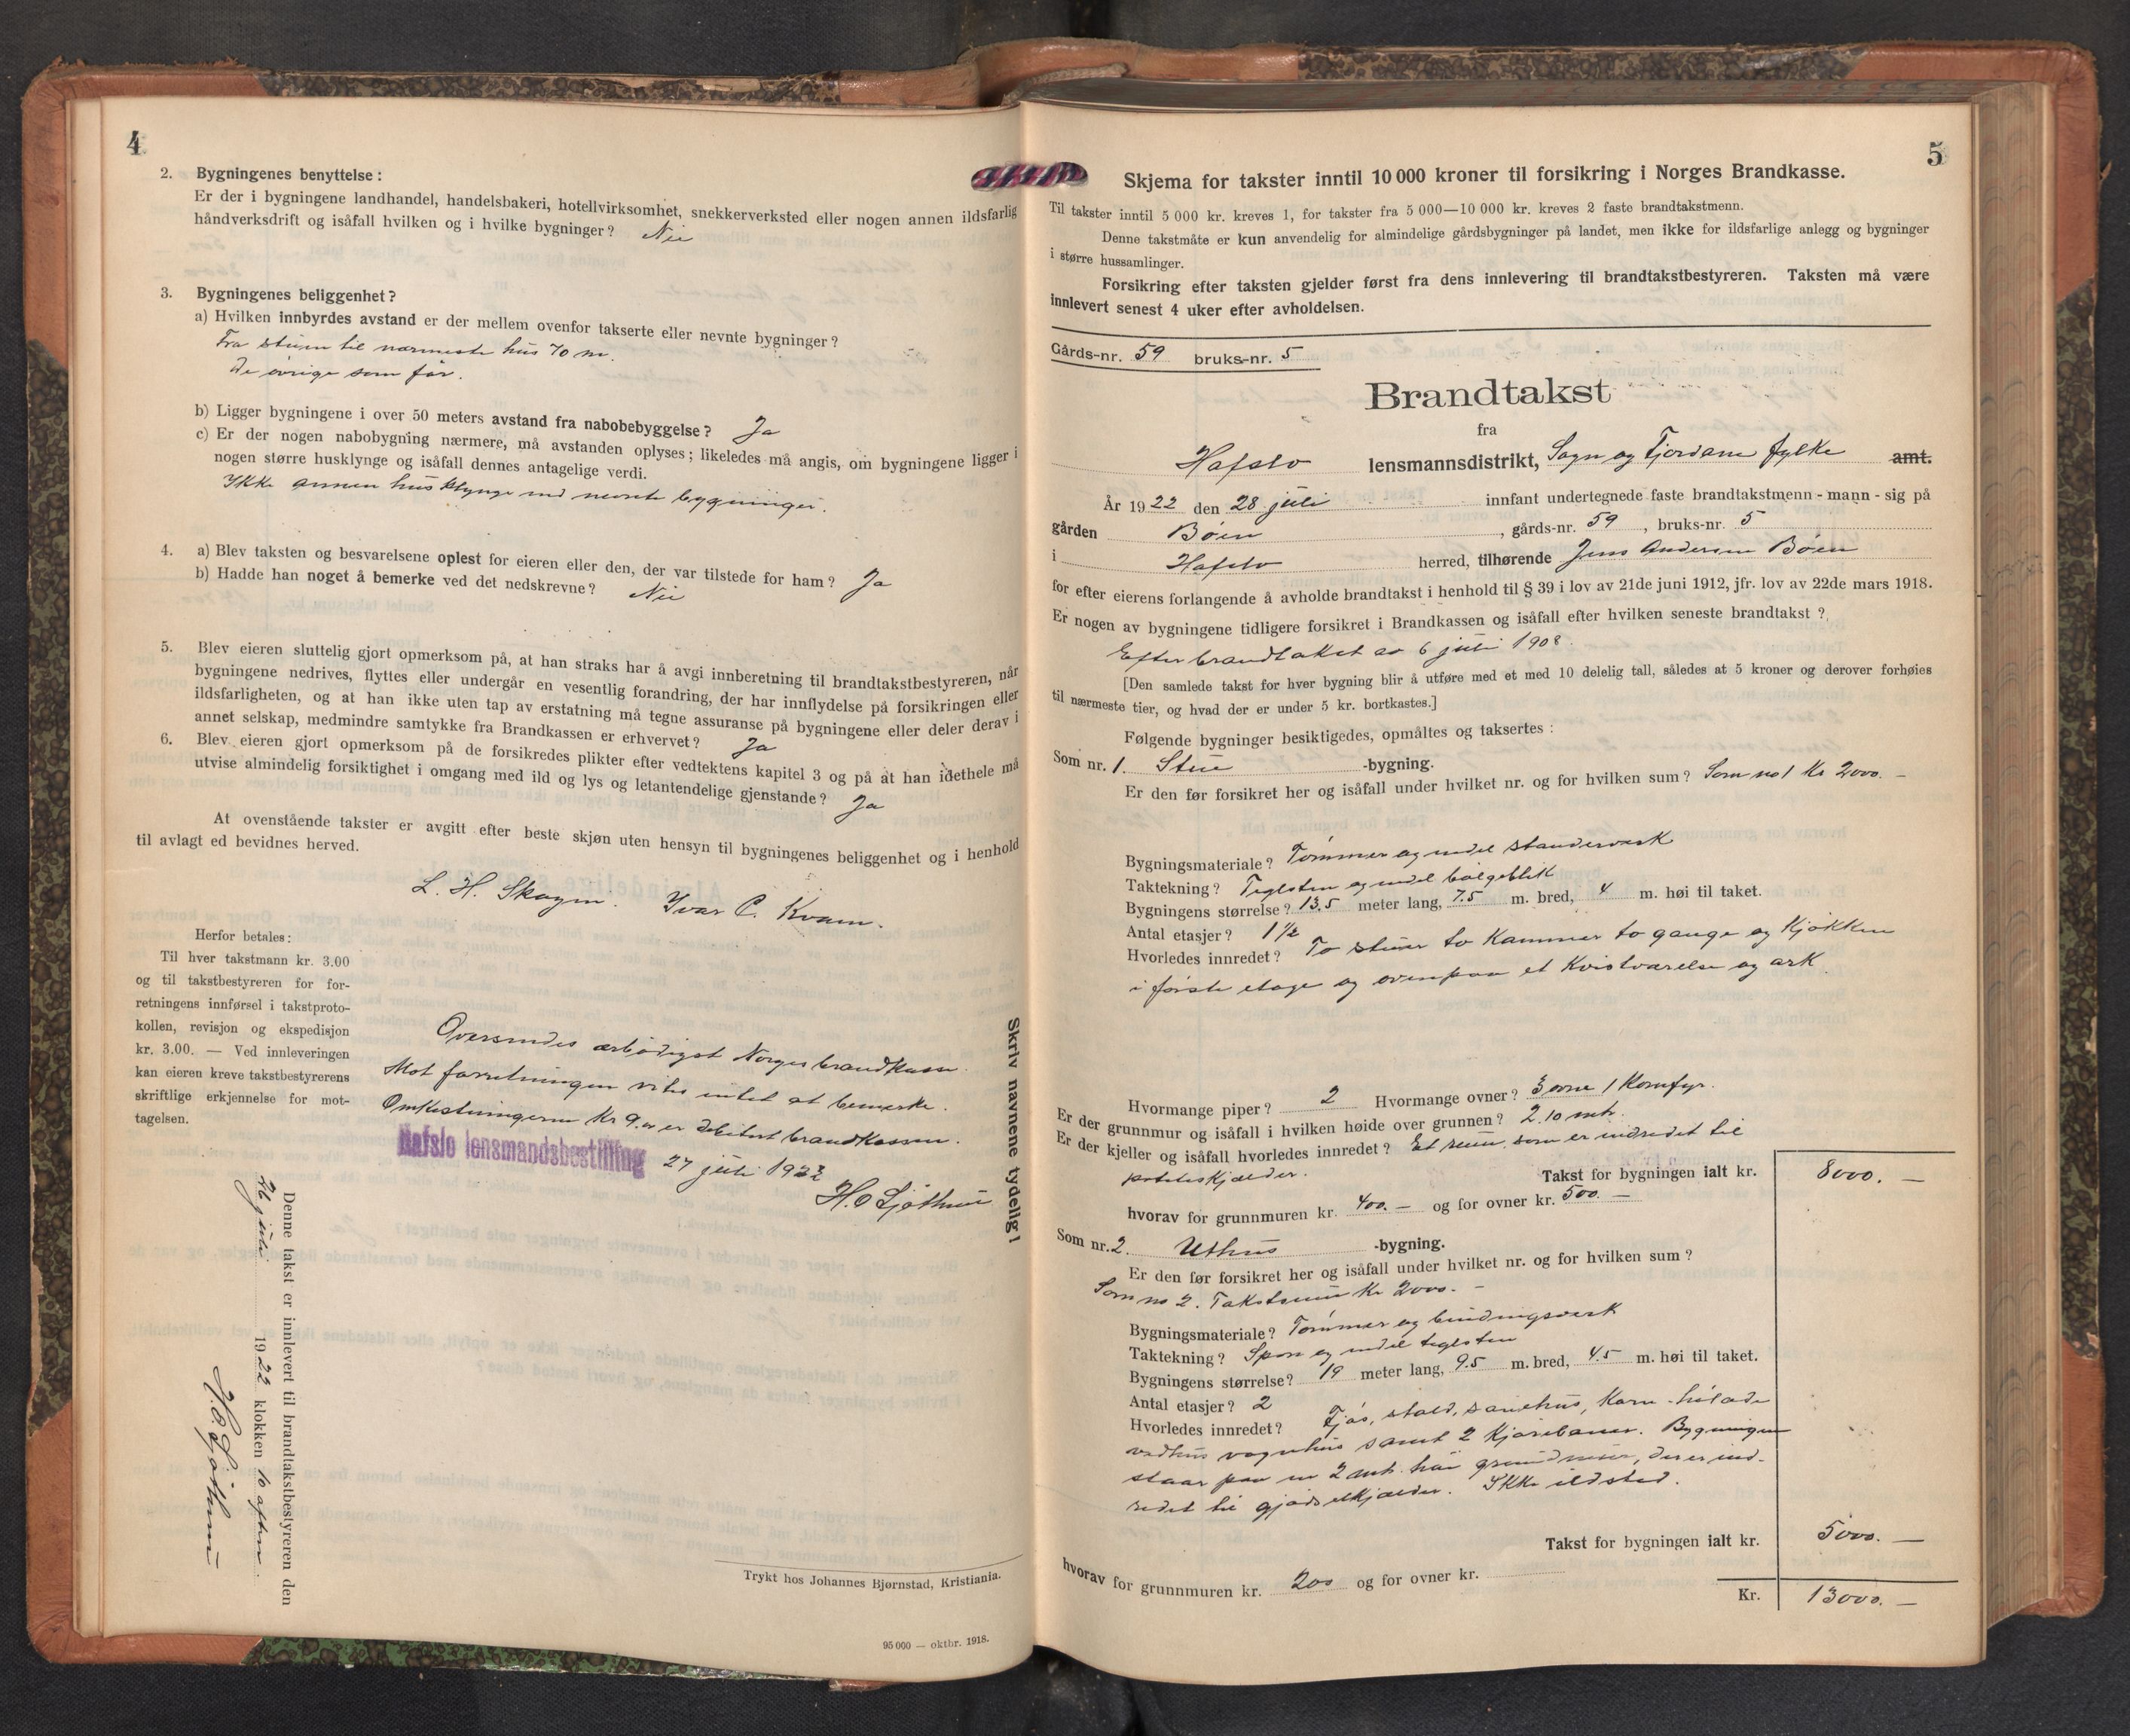 4
2. Bygningenes benyttelse:
Er der i bygningene landhandel, handelsbakeri, hotellvirksomhet, snekkerverksted eller nogen annen ildsfarlig
håndverksdrift og isåfall hvilken og i hvilke bygninger? Nei
3. Bygningenes beliggenhet?
a) Hvilken innbyrdes avstand er der mellem ovenfor takserte eller nevnte bygninger?
Fra stuen til nærmeste hus 70 m.
De øvrige som før.
b) Ligger bygningene i over 50 meters avstand fra nabobebyggelse? Ja
c) Er der nogen nabobygning nærmere, må avstanden oplyses; likeledes må angis, om bygningene ligger i
nogen større husklynge og isåfall dennes antagelige verdi.
Ikke annen husklynge end nevnte bygninger.
4. a) Blev taksten og besvarelsene oplest for eieren eller den, der var tilstede for ham? Ja
b) Hadde han noget å bemerke ved det nedskrevne? Nei
5. Blev eieren sluttelig gjort opmerksom på, at han straks har å avgi innberetning til brandtakstbestyreren, når
bygningene nedrives, flyttes eller undergår en vesentlig forandring, der har innflydelse på forsikringen eller
ildsfarligheten, og at han ikke uten tap av erstatning må tegne assuranse på bygningene eller deler derav i
annet selskap, medmindre samtykke fra Brandkassen er erhvervet? Ja
6. Blev eieren gjort opmerksom på de forsikredes plikter efter vedtektens kapitel 3 og på at han idethele må
utvise almindelig forsiktighet i omgang med ild og lys og letantendelige gjenstande? Ja
At ovenstående takster er avgitt efter beste skjøn uten hensyn til bygningenes beliggenhet og i henhold
til avlagt ed bevidnes herved.
L. H. Skagen. Ivar C. Kvam.
Herfor betales:
Til hver takstmann kr. 3.00
og til takstbestyreren for for-
retningens innførsel i takstproto-
kollen, revisjon og ekspedisjon
kr. 3.00. — Ved innleveringen
kan eieren kreve takstbestyrerens
skriftlige erkjennelse for mot-
tagelsen.
Oversendes ærbødigst Norges brandkasse.
Mot forretningen vites intet at bemerke.
Omkostningerne Kr 9.00 er debitert brandkassen.
Hafslo lensmandsbestilling 27 juli 1922
Skriv navnene tydelig!
Denne takst er innlevert til brandtakstbestyreren den
26 juli 1922 klokken 10 aften.
Trykt hos Johannes Bjørnstad, Kristiania.
95 000 — oktbr. 1918.
5
Skjema for takster inntil 10 000 kroner til forsikring i Norges Brandkasse.
Til takster inntil 5 000 kr. kreves 1, for takster fra 5 000—10 000 kr. kreves 2 faste brandtakstmenn.
Denne takstmåte er kun anvendelig for almindelige gårdsbygninger på landet, men ikke for ildsfarlige anlegg og bygninger
i større hussamlinger.
Forsikring efter taksten gjelder først fra dens innlevering til brandtakstbestyreren. Taksten må være
innlevert senest 4 uker efter avholdelsen.
Gårds-nr. 59 bruks-nr. 5
Brandtakst
fra
Hafslo lensmannsdistrikt, Sogn og Fjordane fylke amt.
År 1922 den 28 juli innfant undertegnede faste brandtakstmenn - mann - sig på
gården Bøen, gårds-nr. 59, bruks-nr. 5
i Hafslo herred, tilhørende Jens Andersen Bøen
for efter eierens forlangende å avholde brandtakst i henhold til § 39 i lov av 21de juni 1912, jfr. lov av 22de mars 1918.
Er nogen av bygningene tidligere forsikret i Brandkassen og isåfall efter hvilken seneste brandtakst?
Efter brandtakst av 6 juli 1908.
[Den samlede takst for hver bygning blir å utføre med et med 10 delelig tall, således at 5 kroner og derover forhøies
til nærmeste tier, og hvad der er under 5 kr. bortkastes.]
Følgende bygninger besiktigedes, opmåltes og taksertes:
Som nr. 1. Stue -bygning.
Er den før forsikret her og isåfall under hvilket nr. og for hvilken sum? Som no 1 Kr 2000. —
Bygningsmateriale? Tømmer og endel standerverk
Taktekning? Teglsten og endel bølgeblik
Bygningens størrelse? 13,5 meter lang, 7.5 m. bred, 4 m. høi til taket.
Antal etasjer? 1 ½
Hvorledes innredet? To stuer to kammer to gange og kjøkken
i første etage og ovenpaa et kvistværelse og ark.
Hvormange piper? 2 Hvormange ovner? 3 ovne 1 komfyr.
Er der grunnmur og isåfall i hvilken høide over grunnen? 2.10 mtr.
Er der kjeller og isåfall hvorledes innredet? Et rum, som er indredet til
poteteskjælder.
Takst for bygningen ialt kr. 8000. —
hvorav for grunnmuren kr. 400. — og for ovner kr. 500. —
Som nr. 2. Uthus -bygning.
Er den før forsikret her og isåfall under hvilket nr. og for hvilken sum?
Som no 2. Takstsum kr 2000. —
Bygningsmateriale? Tømmer og bindingsverk
Taktekning? Spon og endel teglsten
Bygningens størrelse? 19 meter lang, 9.5 m. bred, 4.5 m. høi til taket.
Antal etasjer? 2
Hvorledes innredet? Fjøs, stald, sauehus, korn-høilade
vedhus vognhus samt 2 kjørebaner. Bygningen
staar paa en 2 mtr. høi grundmur, der er ind-
redet til gjødselkjælder. Ikke ildsted.
Takst for bygningen ialt kr. 5000. —
hvorav for grunnmuren kr. 200 og for ovner kr.
Kr. 13000. —